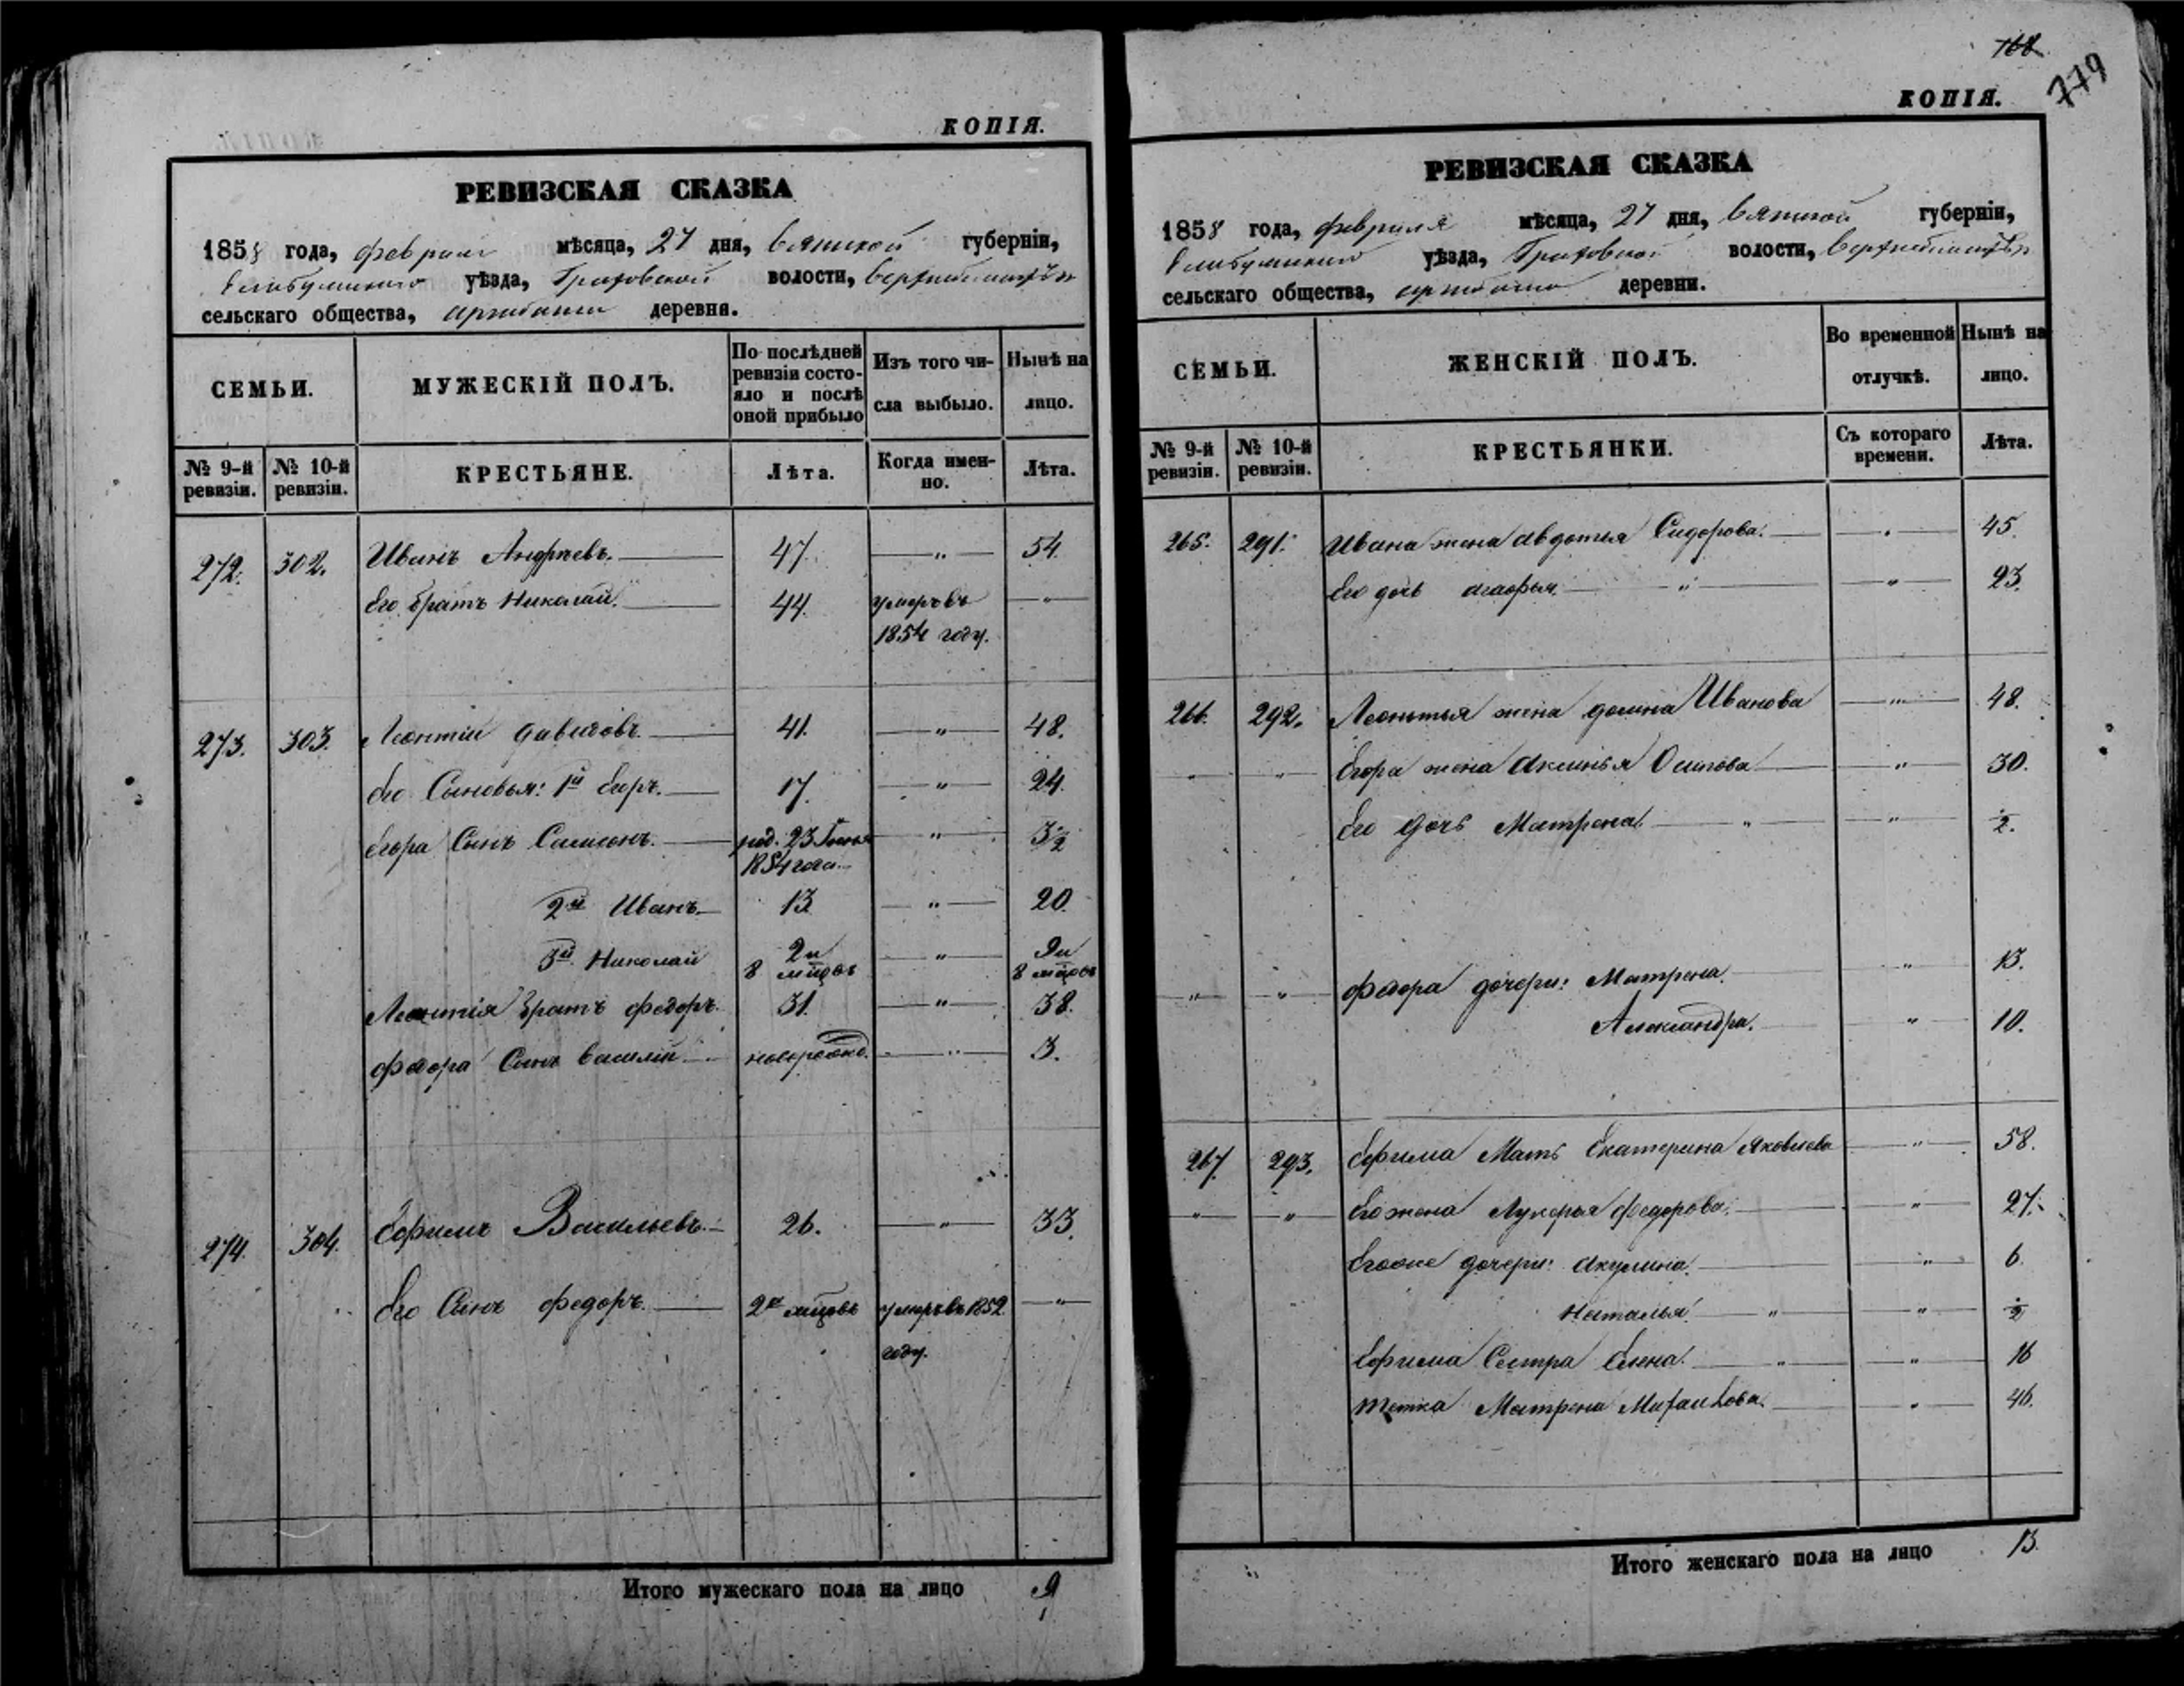 КОПІЯ.
РЕВИЗСКАЯ СКАЗКА
1858 года, февраля мѣсяца, 27 дня, Вятской губерніи,
Елабужскаго уѣзда, Граховской волости,
сельскаго общества, деревни.
СЕМЬИ. МУЖЕСКІЙ ПОЛЪ. По послѣдней ревизіи состояло и послѣ оной прибыло Изъ того числа выбыло. Нынѣ на лицо.
№ 9-й ревизіи. № 10-й ревизіи. КРЕСТЬЯНЕ. Лѣта. Когда именно. Лѣта.
272. 302. Иванъ Андреевъ. 47. „ 54.
Его братъ Николай. 44. умеръ въ 1854 году. „
273. 303. Леонтій Давидовъ. 41. „ 48.
Его Сыновья: 1й Егоръ. 17. „ 24.
Егора Сынъ Самсонъ. род. 23 1854 года. „ 3½
2й Иванъ 13 „ 20.
3й Николай 2 и 8 мцовъ „ 9 и 8 мцовъ
Леонтія братъ Федоръ. 31. „ 38.
Федора Сынъ Василій. новорожд. „ 3.
274. 304. Ефимъ Васильевъ. 26. „ 33.
Его Сынъ Федоръ. 2х мцовъ умеръ въ 1852 году. „
Итого мужескаго пола на лицо 9
168
779
КОПІЯ.
РЕВИЗСКАЯ СКАЗКА
1858 года, февраля мѣсяца, 27 дня, Вятской губерніи,
Елабужскаго уѣзда, Граховской волости,
сельскаго общества, деревни.
СЕМЬИ. ЖЕНСКІЙ ПОЛЪ. Во временной отлучкѣ. Нынѣ на лицо.
№ 9-й ревизіи. № 10-й ревизіи. КРЕСТЬЯНКИ. Съ котораго времени. Лѣта.
265. 291. Ивана жена Авдотья Сидорова. „ 45.
Его дочь „ „ 23.
266. 292. Леонтья жена Домна Иванова „ 48.
„ „ Егора жена Аксинья Осипова „ 30.
Его дочь Матрена. „ „ ½.
„ „ Федора дочери: Матрена. „ 13.
Александра. „ 10.
267. 293. Ефима Мать Екатерина Яковлева „ 58.
„ „ Его жена Лукерья Федорова. „ 27.
Егоже дочери: Акулина. „ 6
Наталья. „ „ ½
Ефима Сестра Елена. „ „ 16
Тетка Матрена Михайлова. „ 46.
Итого женскаго пола на лицо 13.